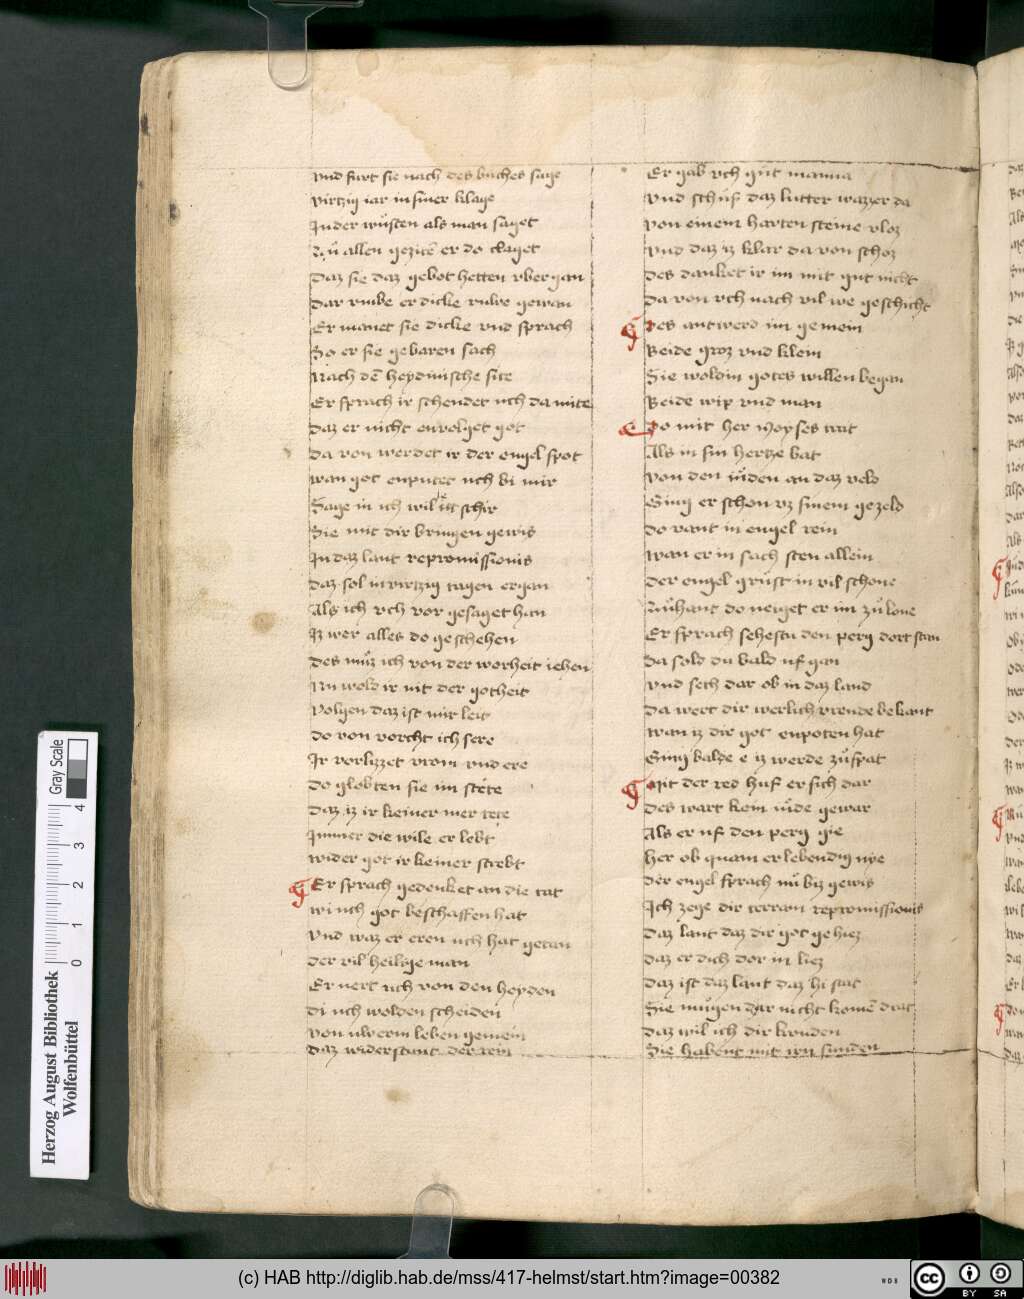 vnd furt sie nach des buches sage
virtzig iar in siner klage
Jnder wůsten als man saget
Zů allen gezitē er do claget
Daz sie daz gebot hetten vbergan
Dar vmbe er dicke rulve gewan
Er manet sie dicke vnd sprach
So er sie gebaren sach
Nach dē heydinische site
Er sprach ir schendet uch da mite
Daz er nicht envolget got
Da von werdet ir der engel spot
wan got enputet uch bi mir
Sage in ich wil schir
Sie mit dir bringen gewis
Jn daz lant repromissionis
Daz sol in virtzig tagen ergan
Als ich vch vor gesaget han
Jz wer alles do geschehen
Des můz ich von der worheit iehen
Nu wold ir nit der gotheit
Volgen daz ist mir leit
Do von vorcht ich sere
Jr vorlizzet vrom vnd ere
Do globten sie im stete
Daz iz ir keiner mer tete
Jmmer die wile er lebt
wider got ir keiner strebt
Er sprach gedenket an die tat
wi uch got beschaffen hat
Vnd waz er eren uch hat getan
Der vil heilige man
Er nert uch von den heyden
Di uch wolden scheiden
Von uwerm leben gemein
Daz widerstunt der rein
Er gab vch gut manna
Vnd schuf daz lutter wazzer da
Von einem harten steine vloz
Vnd daz iz klar da von schoz
Des danket ir im mit gut nicht
Da von vch nach vil we geschicht
Des antwerd im gemein
Beide groz vnd klein
Sie woldin gotes willen began
Beide wip vnd man
Do mit her Moyses trat
Als in sin hertze bat
Von den iůden an daz veld
Ging er schon vz sinem gezeld
Do vant in engel rein
wan er in sach sten allein
Der engel grůst in vil schone
Zuhant do neiget er im zů lone
Er sprach sehestu den perg dort stan
Da sold du bald uf gan
Vnd sech dar ob in daz land
Da wert dir werlich vreude bekant
wan iz dir got enpoten hat
Ging balde e iz werde zůspat
Mit der red hůf er sich dar
Des wart kein iůde gewar
Als er uf den perg gie
Her ob quam er lebendig nye
Der engel sprach nů biz gewis
Ich zege dir terram repromissionis
Daz lant daz dir got gehiez
Daz er dich dor in liez
Daz ist daz lant daz hi stat
Sie můgen dar nicht komē drat
Daz wil ich dir kunden
Sie habent mit irn sunden
Gray Scale
0 1 2 3 4
Herzog August Bibliothek
Wolfenbüttel
(c) HAB http://diglib.hab.de/mss/417-helmst/start.htm?image=00382
WDB
CC BY SA